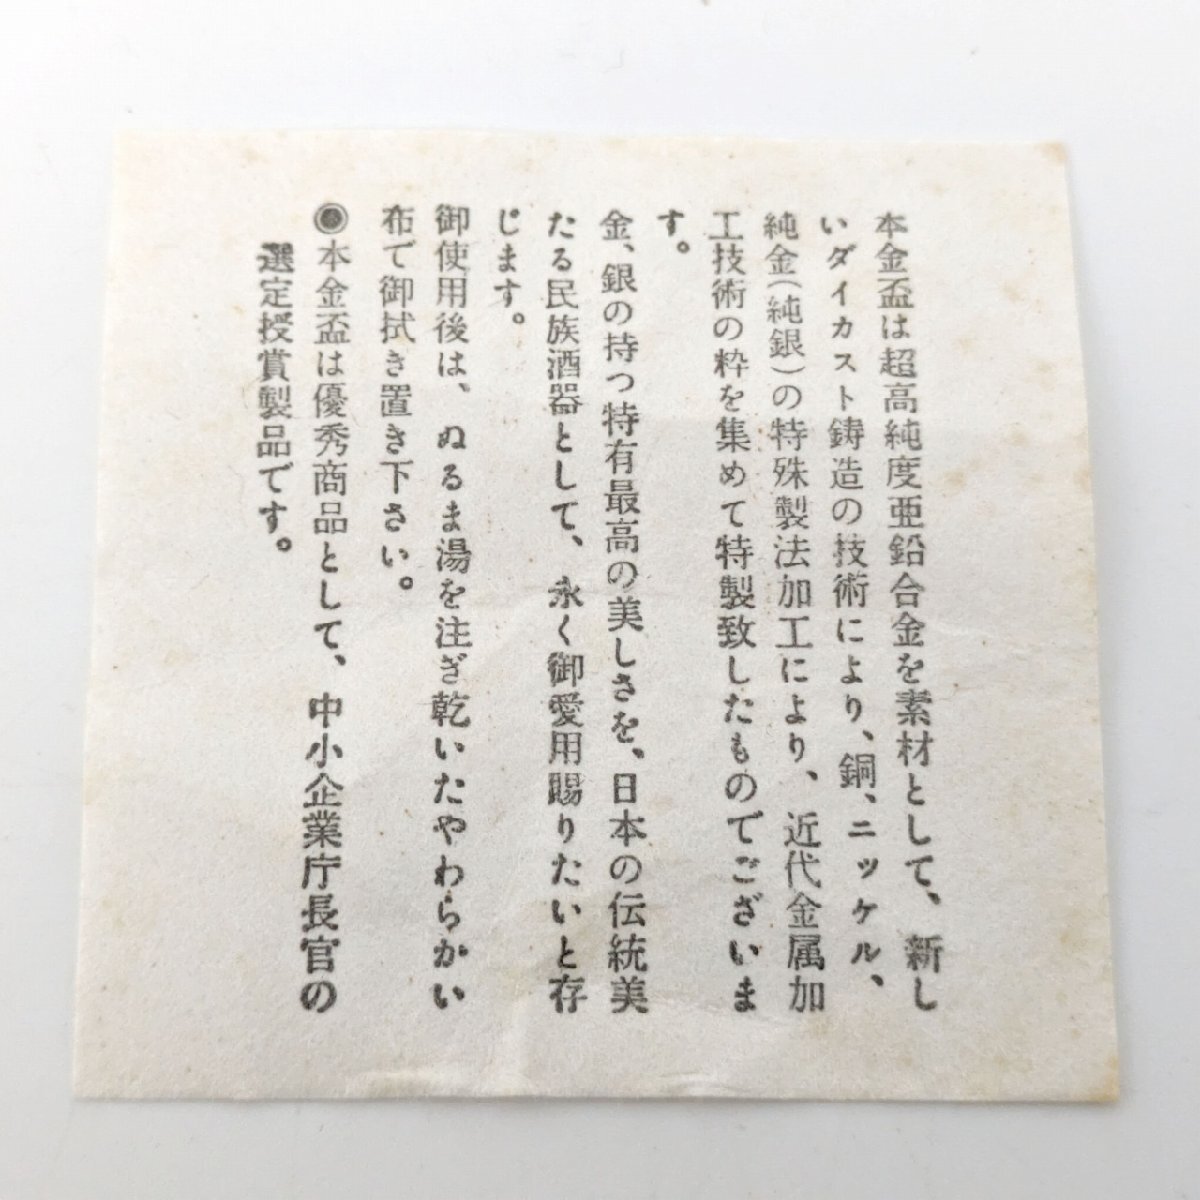 本金盃は超高純度亜鉛合金を素材として、新し
いダイカスト鋳造の技術により、銅、ニッケル、
純金(純銀)の特殊製法加工により、近代金属加
工技術の粋を集めて特製致したものでございま
す。
金、銀の持つ特有最高の美しさを、日本の伝統美
たる民族酒器として、永く御愛用賜りたいと存
じます。
御使用後は、ぬるま湯を注ぎ乾いたやわらかい
布で御拭き置き下さい。
◉本金盃は優秀商品として、中小企業庁長官の
選定授賞製品です。